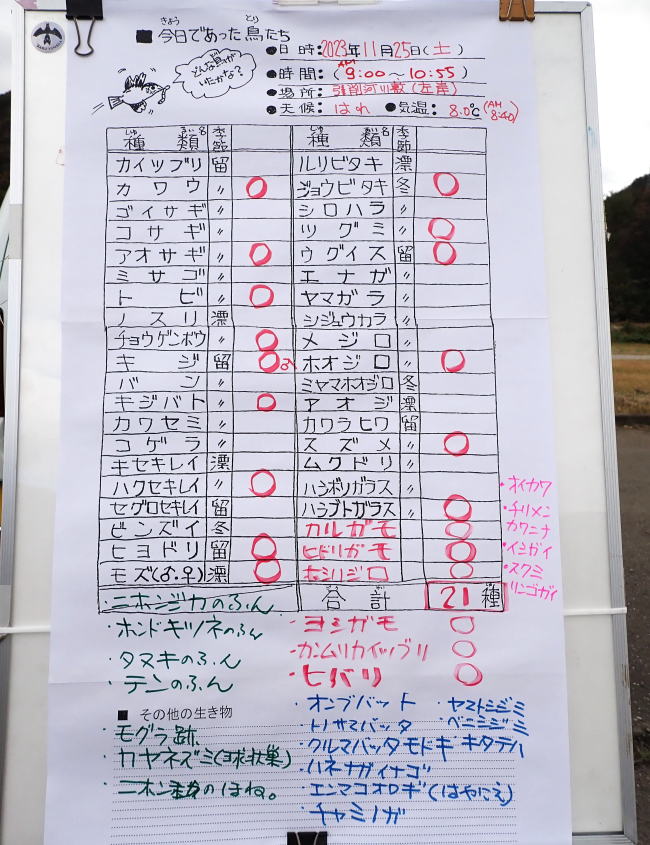 きょう とり
■ 今日であった鳥たち
どんな鳥が
いたかな？
●日時：2023年11月25日（土）
●時間：（AM 9:00〜10:55）
●場所：河川敷（左岸）
●天候：はれ ●気温：8.0℃（AM 8:40）
種類名 季節 種類名 季節
カイツブリ 留 ルリビタキ 漂
カワウ 〃 ○ ジョウビタキ 冬 ○
ゴイサギ 〃 シロハラ 〃
コサギ 〃 ツグミ 〃 ○
アオサギ 〃 ○ ウグイス 留 ○
ミサゴ 〃 エナガ 〃
トビ 〃 ○ ヤマガラ 〃
ノスリ 漂 シジュウカラ 〃
チョウゲンボウ 〃 ○ メジロ 〃
キジ 留 ○♂ ホオジロ 〃 ○
バン 〃 ミヤマホオジロ 冬
キジバト 〃 ○ アオジ 漂
カワセミ 〃 カワラヒワ 留
コゲラ 〃 スズメ 〃 ○
キセキレイ 漂 ムクドリ 〃
ハクセキレイ 〃 ○ ハシボソガラス 〃
セグロセキレイ 留 ハシブトガラス 〃 ○
ビンズイ 冬 カルガモ ○
ヒヨドリ 留 ○ ヒドリガモ ○
モズ(♂.♀) 漂 ○ ホシハジロ ○
合計 21種
・オイカワ
・チリメン
カワニナ
・イシガイ
・スクミ
リンゴガイ
・ニホンジカのふん
・ホンドギツネのふん
・タヌキのふん
・テンのふん
・ヨシガモ ○
・カンムリカイツブリ ○
・ヒバリ ○
■ その他の生き物
・モグラ跡
・カヤネズミ（球状巣）
・ニホンのはね。
・オンブバッタ ・ヤマトシジミ
・トノサマバッタ ・ベニシジミ
・クルマバッタモドキ キタテハ
・ハネナガイナゴ
・エンマコオロギ（はやにえ）
・チャミノガ